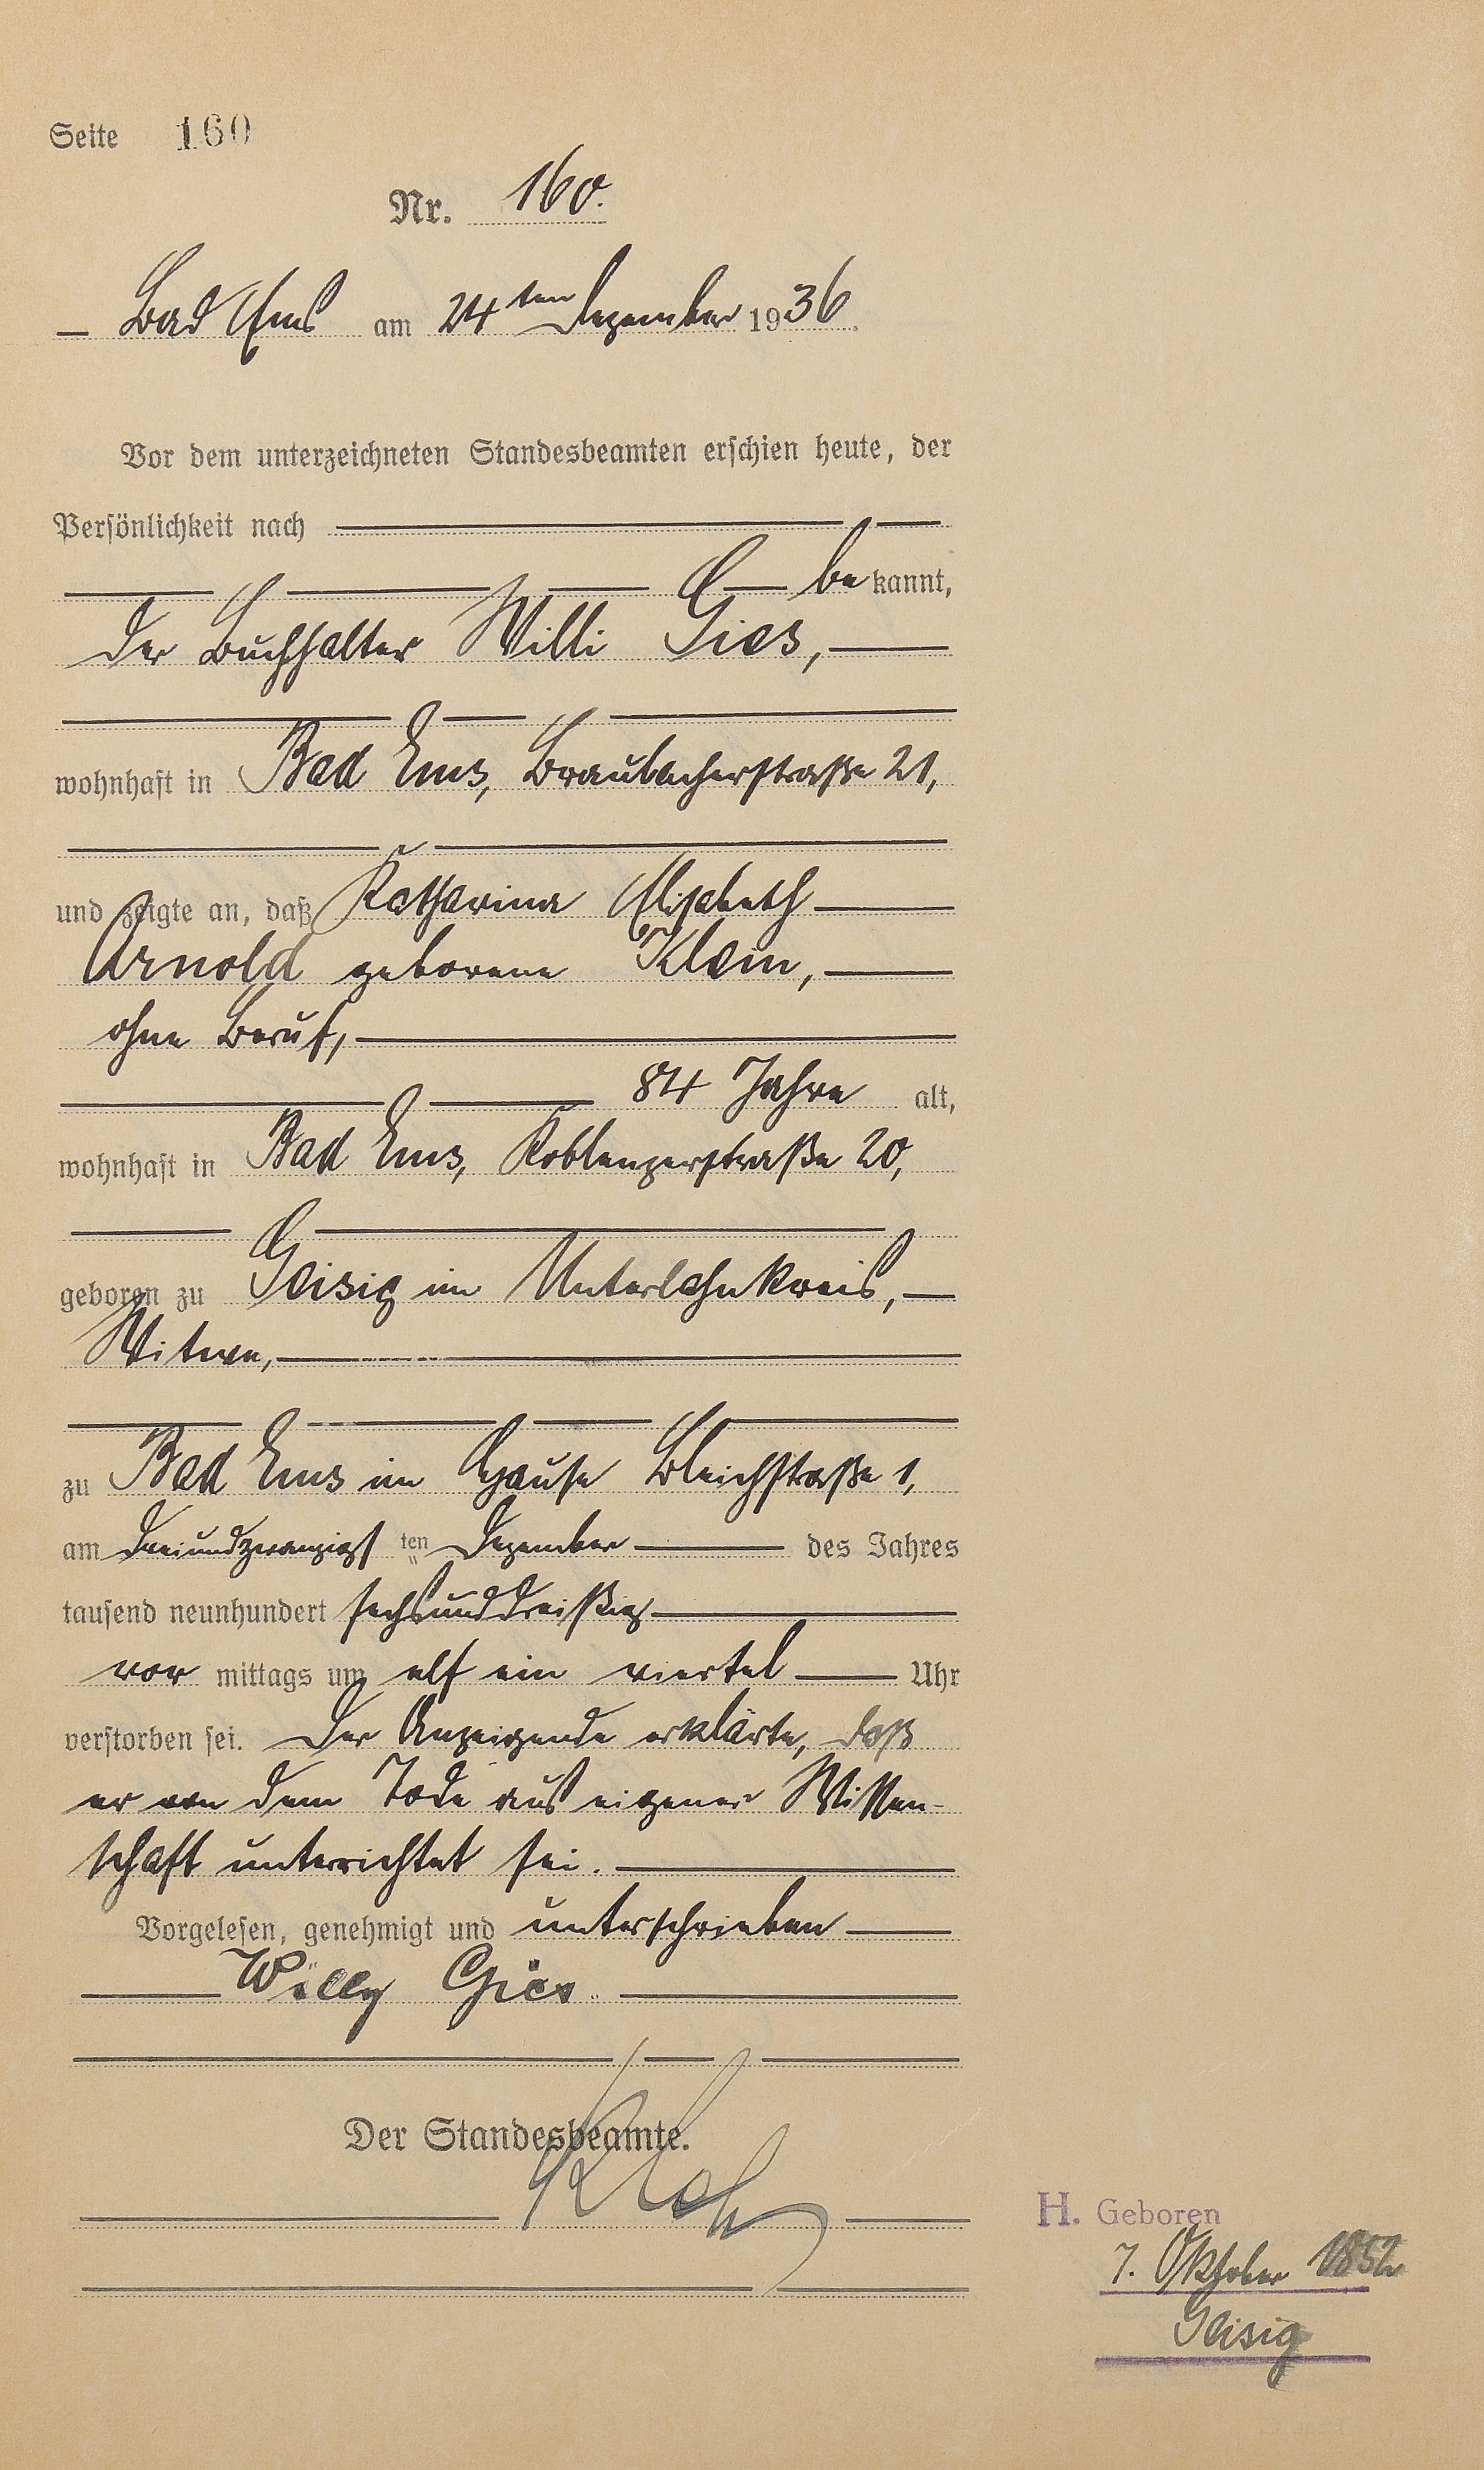 Seite 160
Nr. 160.
Bad Ems am 24ten Dezember 1936.
Vor dem unterzeichneten Standesbeamten erschien heute, der
Persönlichkeit nach
be kannt,
der Buchhalter Willi Gies,
wohnhaft in Bad Ems, Braubacherstraße 21,
und zeigte an, daß Katharina Elisabeth
Arnold geborene Klein,
ohne Beruf,
84 Jahre alt,
wohnhaft in Bad Ems, Koblenzerstraße 20,
geboren zu Geisig im Unterlahnkreis,
Witwe,
zu Bad Ems im Hause Bleichstraße 1,
am dreiundzwanzigs ten Dezember des Jahres
tausend neunhundert sechsunddreißig
vor mittags um elf ein viertel Uhr
verstorben sei. Der Anzeigende erklärte, daß
er von dem Tode aus eigener Wissen-
schaft unterrichtet sei.
Vorgelesen, genehmigt und unterschrieben
Willy Gies.
Der Standesbeamte.
H. Geboren
7. Oktober 1852
Geisig